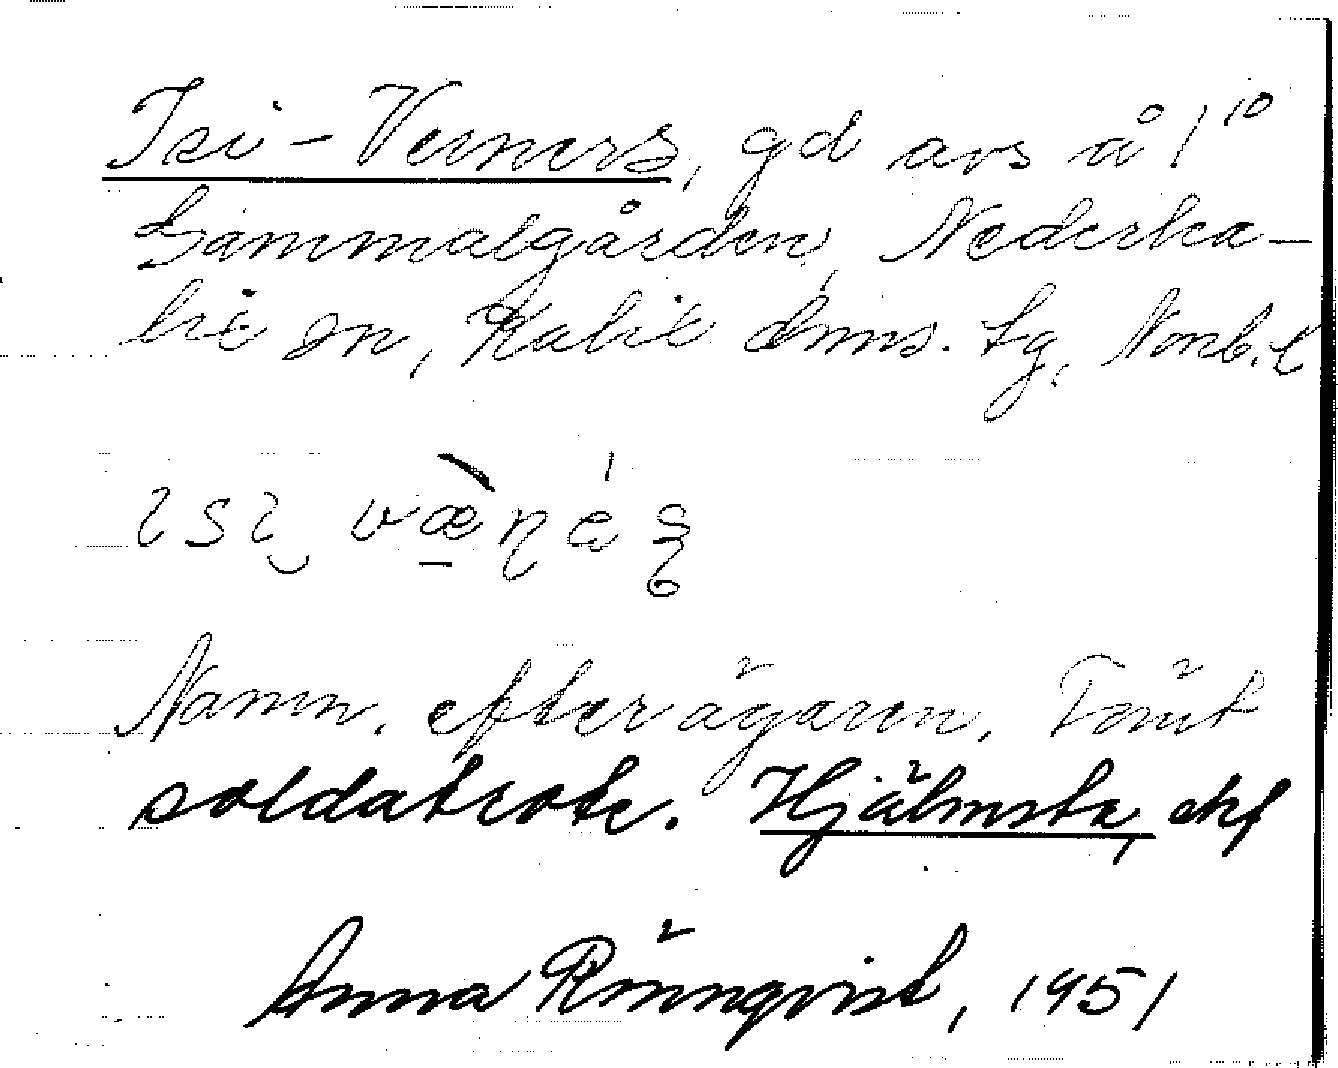 Isi-Verners, gd avs å 1/10
Gammalgården, Nederka-
lix sn, Kalix dms. tg, Norrb. l
ɩsɩ̮ væ̀ṇáʂ
Namn. efter ägaren. Förut
soldatrote. Hjälmsta, ekf
Anna Rönnqvist, 1951